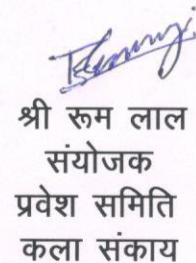 श्री रूम लाल
संयोजक
प्रवेश समिति
कला संकाय